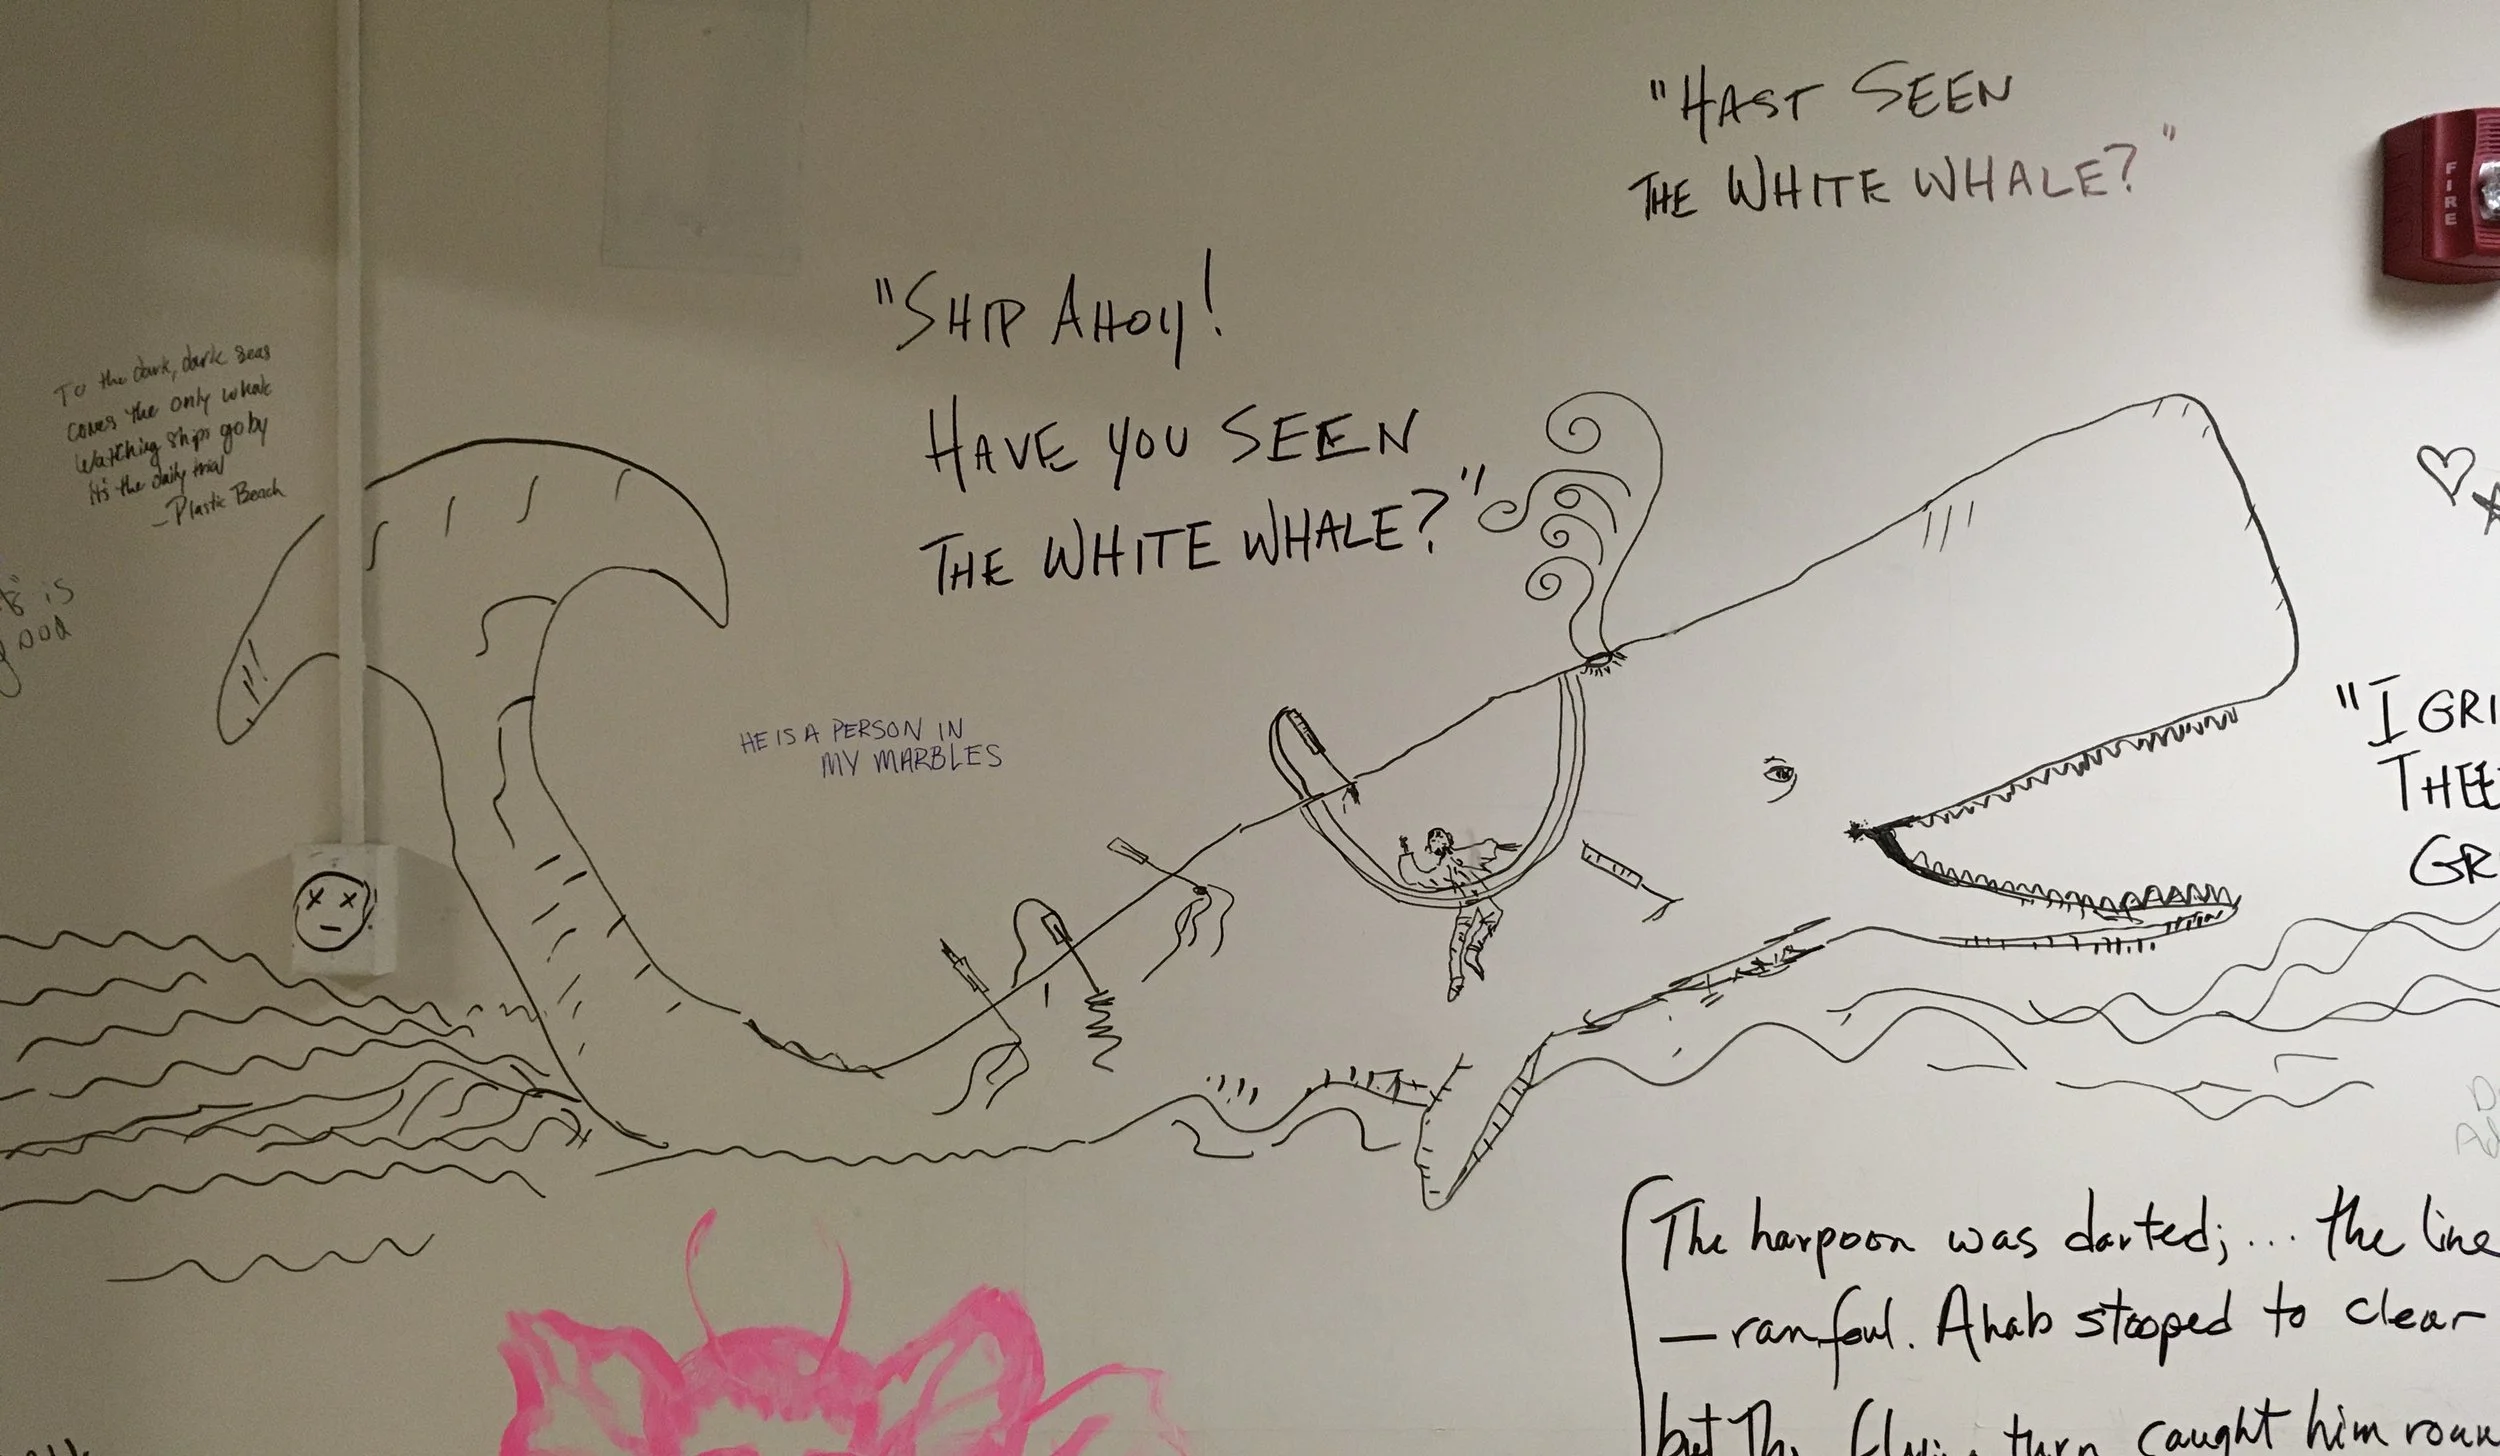 "HAST SEEN
THE WHITE WHALE?"
FIRE
"SHIP AHOY!
HAVE YOU SEEN
THE WHITE WHALE?"
To the dark, dark seas
comes the only whale
Watching ships go by
it's the daily trial
- Plastic Beach
is
HE IS A PERSON IN
MY MARBLES
"I GRI
THEE
GR
The harpoon was darted; ... the line
— ran foul. Ahab stooped to clear
but The flying turn caught him roun